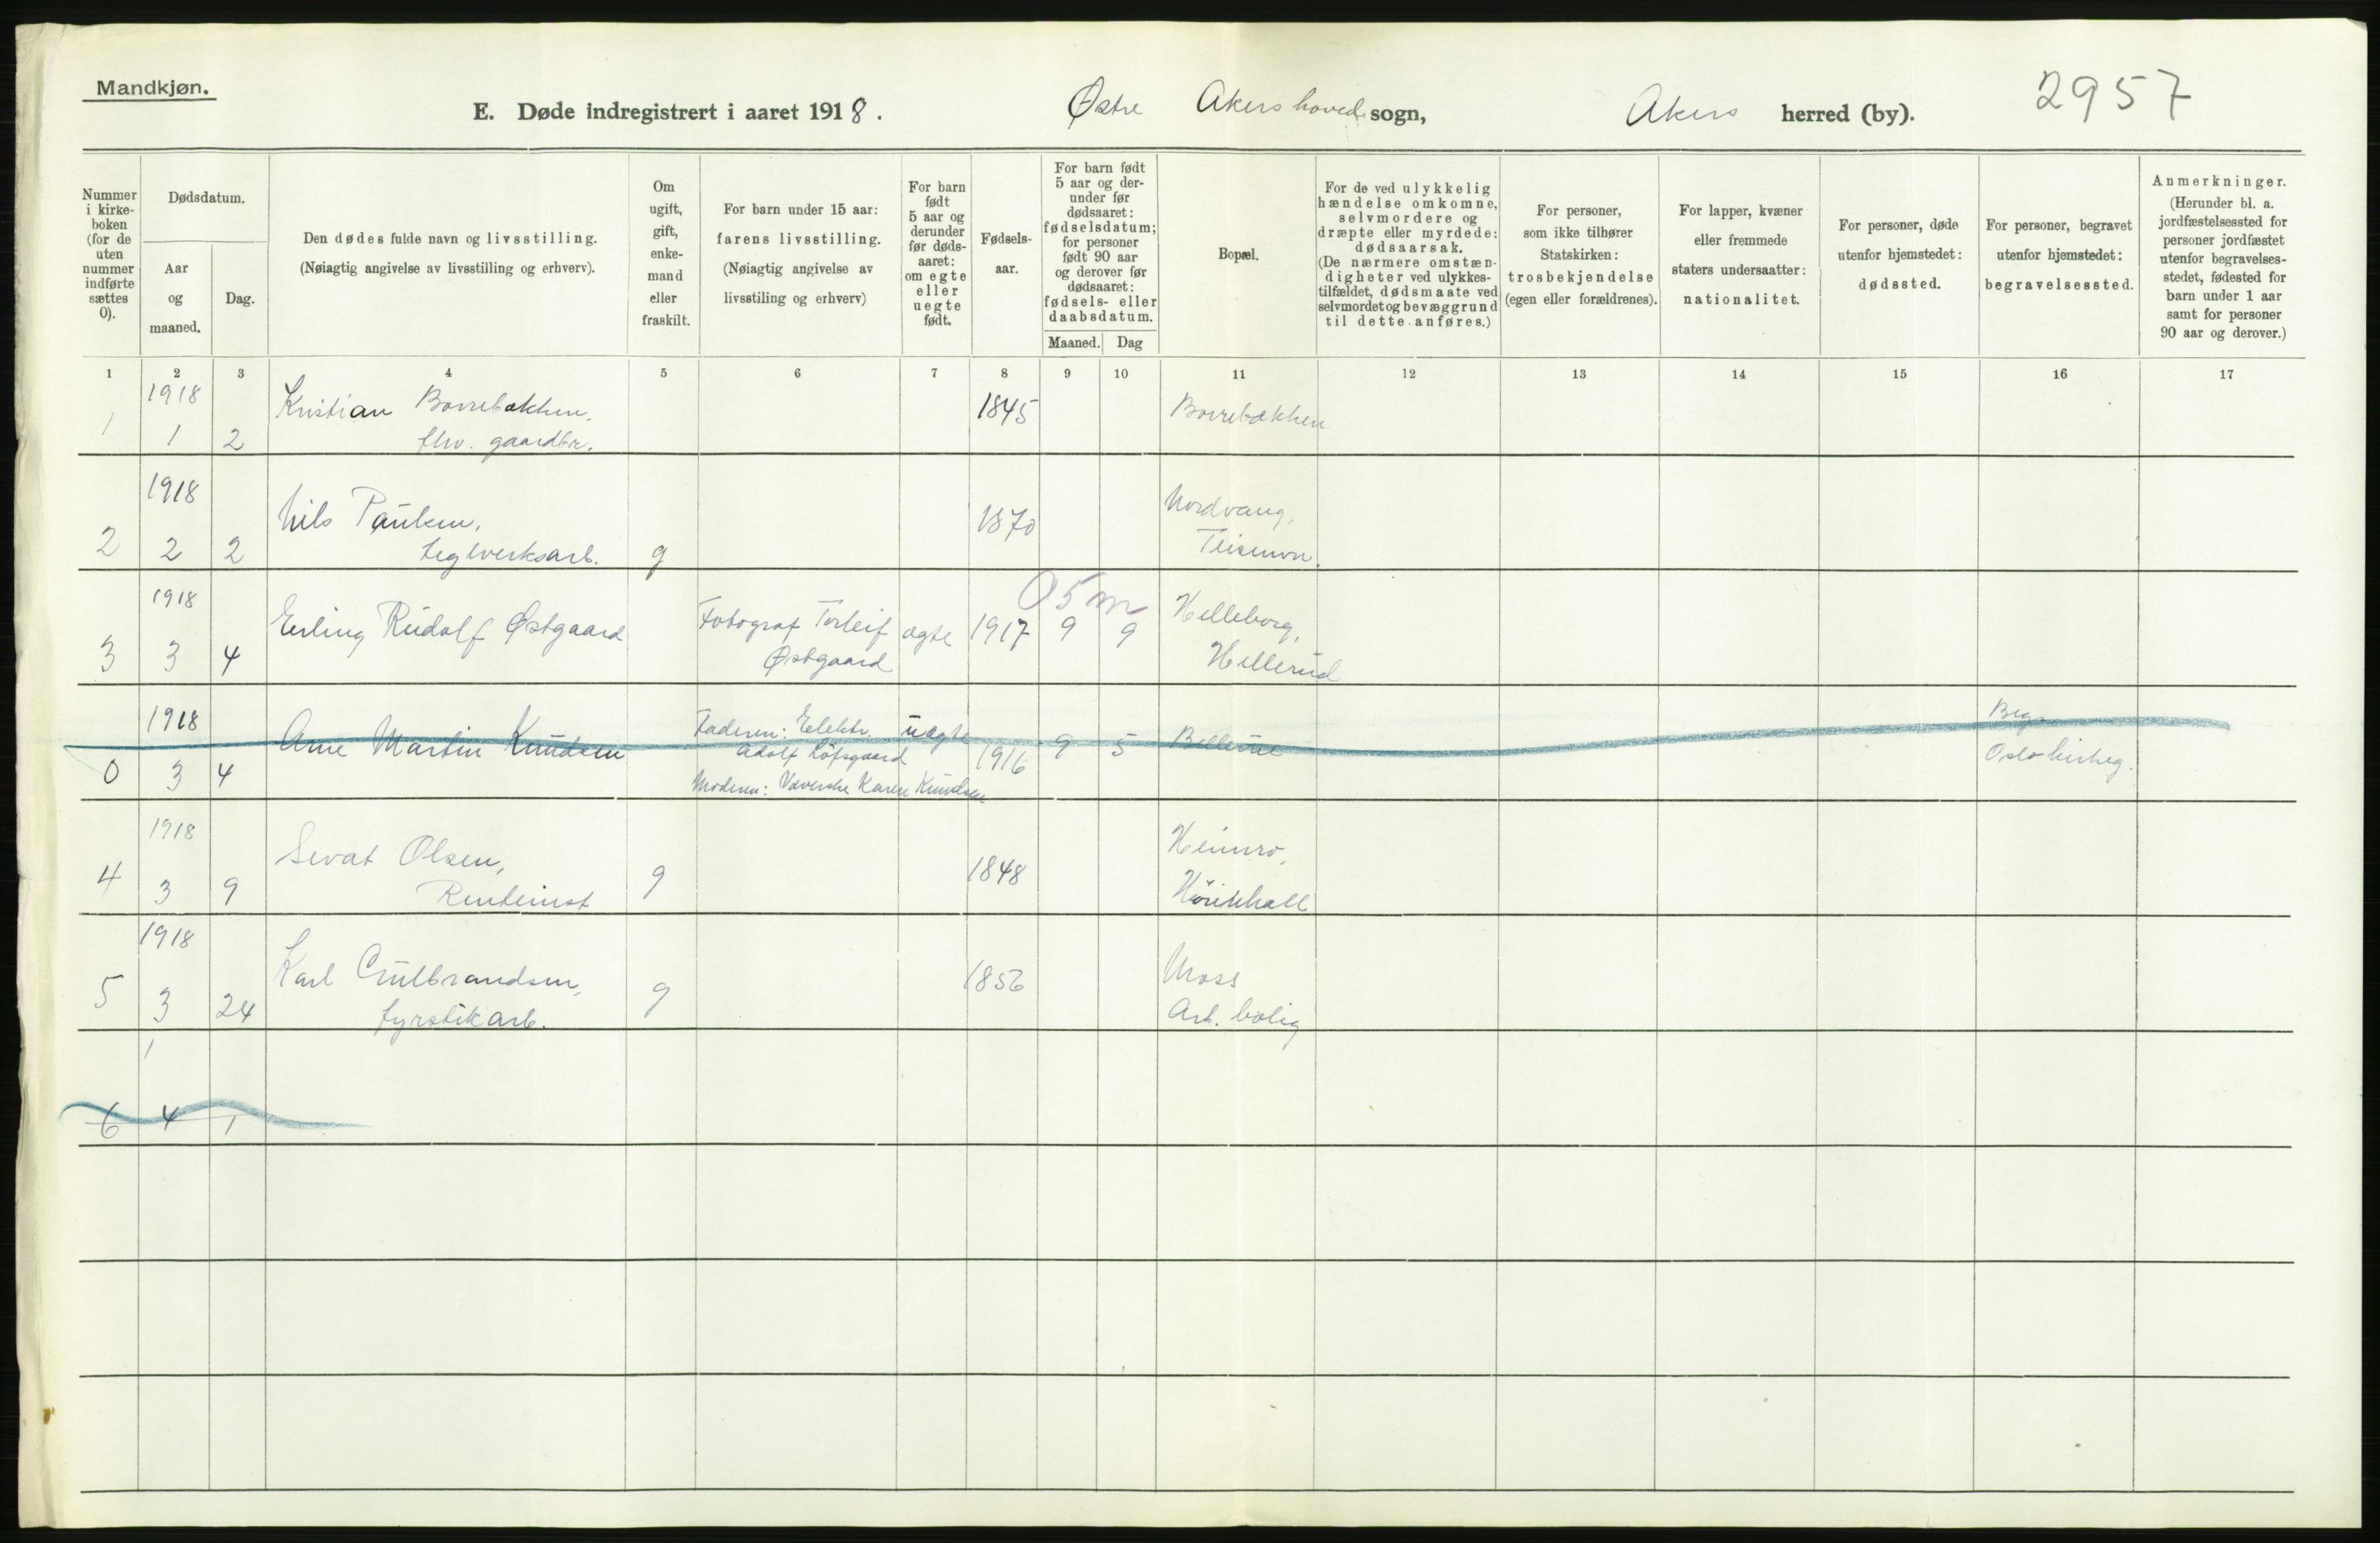 Mandkjøn.
E. Døde indregistrert i aaret 1918. Østre Akers hoved sogn, Akers herred (by). 2957
Nummer i kirkeboken (for de uten nummer indførte sættes 0).
Dødsdatum.
Aar og maaned.
Dag.
Den dødes fulde navn og livsstilling.
(Nøiagtig angivelse av livsstilling og erhverv).
Om ugift, gift, enkemand eller fraskilt.
For barn under 15 aar:
farens livsstilling.
(Nøiagtig angivelse av livsstiling og erhverv)
For barn født 5 aar og derunder før dødsaaret: om egte eller uegte født.
Fødselsaar.
For barn født 5 aar og derunder før dødsaaret: fødselsdatum; for personer født 90 aar og derover før dødsaaret: fødsels- eller daabsdatum.
Maaned. Dag
Bopæl.
For de ved ulykkelig hændelse omkomne, selvmordere og dræpte eller myrdede: dødsaarsak.
(De nærmere omstændigheter ved ulykkestilfældet, dødsmaate ved selvmordet og bevæggrund til dette anføres.)
For personer, som ikke tilhører Statskirken: trosbekjendelse (egen eller forældrenes).
For lapper, kvæner eller fremmede staters undersaatter: nationalitet.
For personer, døde utenfor hjemstedet: dødssted.
For personer, begravet utenfor hjemstedet: begravelsessted.
Anmerkninger.
(Herunder bl. a. jordfæstelsessted for personer jordfæstet utenfor begravelsesstedet, fødested for barn under 1 aar samt for personer 90 aar og derover.)
1 2 3 4 5 6 7 8 9 10 11 12 13 14 15 16 17
1918
1 1 2 Kristian Borrebækken, 1845 Borrebækken
fhv. gaardbr.
1918
2 2 2 Nils Paulsen, 1870 Nordvang,
teglverksarb. g Teisenvn.
1918 05m
3 3 4 Erling Rudolf Østgaard Fotograf Torleif ægte 1917 9 9 Helleborg,
Østgaard Hellerud
1918 Faderen: Elektr. uægte Beg.
0 3 4 Arne Martin Knudsen Adolf Løfsgaard 1916 9 5 Oslo kirkeg.
Moderen: Væverske Karen Knudsen
1918
4 3 9 Sivat Olsen, g 1848 Heimro,
Rentenist
1918
5 3 24 Karl Gulbrandsen, g 1856 Moss
fyrstikarb. Arb. bolig
1
6 4 1